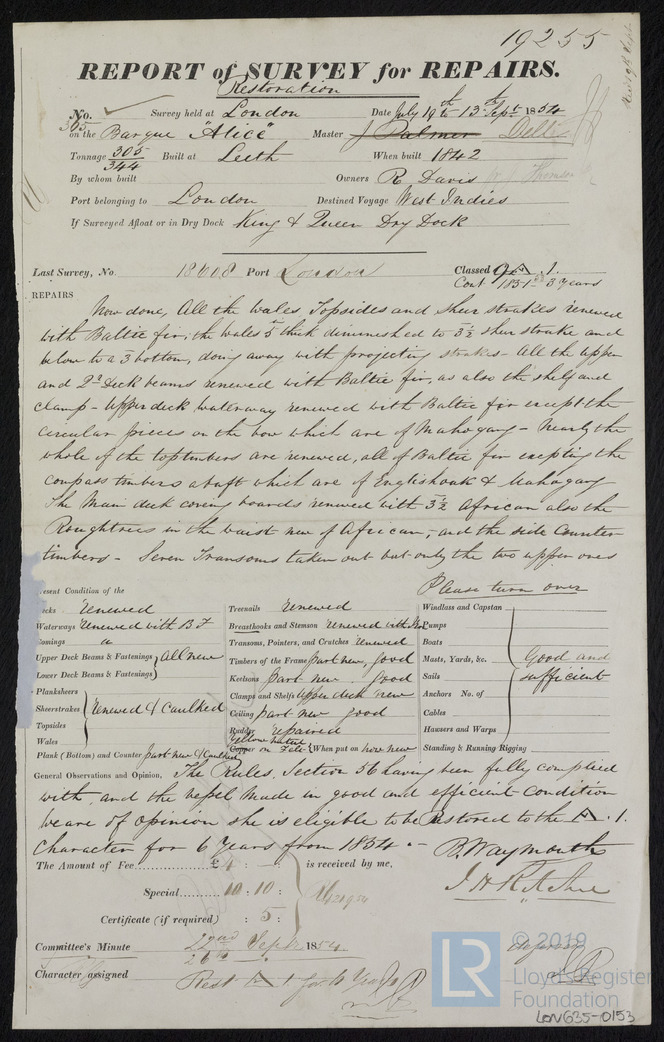 19255
REPORT of SURVEY for REPAIRS.
Restoration
No. 305 Survey held at London Date July 19th to 13th Sept 1854
on the Barque "Alice" Master J Palmer
Tonnage 305/344 Built at Leith When built 1842
By whom built Owners R Davis
Port belonging to London Destined Voyage West Indies
If Surveyed Afloat or in Dry Dock King & Queen Dry Dock
Last Survey, No. 18608 Port London Classed A 1.
Cont 1851 3 years
REPAIRS
Now done, All the wales, Topsides and sheer strakes renewed
with Baltic fir, the wales 5 thick diminished to 3½ sheer strake and
below to a 3 bottom, doing away with projecting strakes - All the upper
and 2d Deck beams renewed with Baltic fir, as also the shelf and
clamp - Upper deck waterway renewed with Baltic fir except the
circular pieces on the bow which are of Mahogany - Nearly the
whole of the toptimbers are renewed, all of Baltic fir excepting the
compass timbers abaft which are of English oak & Mahogany
The Main deck covering boards renewed with 3½ African also the
Roughtrees in the waist new of African, and the side Counter
timbers - Seven Transoms taken out but only the two upper ones
Please turn over
esent Condition of the
ecks renewed
Waterways renewed with B F
Comings "
Upper Deck Beams & Fastenings } all new
Lower Deck Beams & Fastenings
Planksheers
Sheerstrakes } renewed & Caulked
Topsides
Wales
Plank (Bottom) and Counter part new & Caulked
Treenails renewed
Breasthooks and Stemson renewed with
Transoms, Pointers, and Crutches renewed
Timbers of the Frame part new, good
Keelsons part new good
Clamps and Shelfs upper deck new
Ceiling part new good
Rudder repaired
Yellow Metal
Copper on Felt { When put on now new
Windlass and Capstan
Pumps
Boats
Masts, Yards, &c. Good and
Sails sufficient
Anchors No. of
Cables
Hausers and Warps
Standing & Running Rigging
General Observations and Opinion, The Rules, Section 56 having been fully complied
with, and the vessel made in good and efficient condition
we are of opinion she is eligible to be Restored to the A. 1.
Character for 6 Years from 1854.-
B. Waymouth
The Amount of Fee £4 : - : is received by me,
Special 10 : 10 :
Certificate (if required) : 5 :
Committee's Minute 22nd Sept 1854
26th "
Character assigned Rest A 1 for 6 Years
© 2019
LR
Lloyd's Register
Foundation
LON635-0153